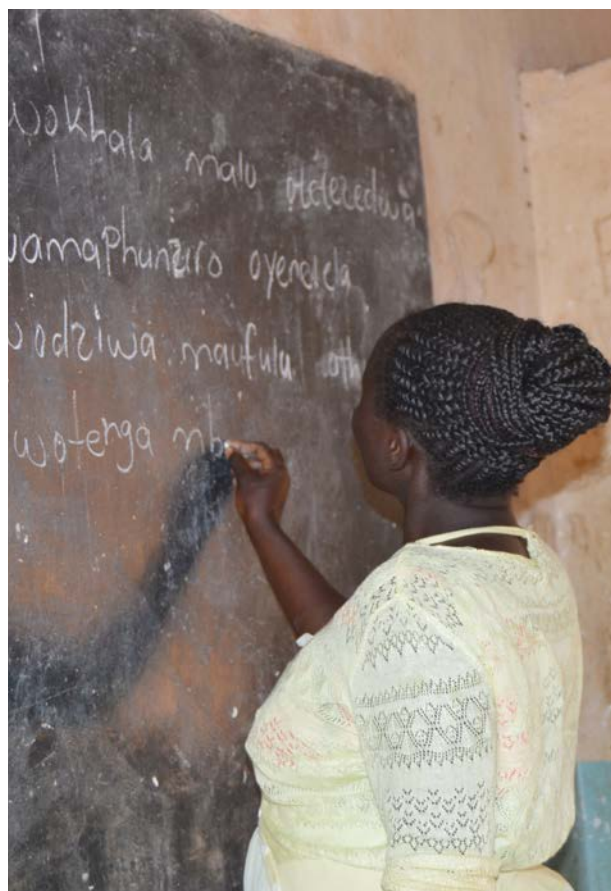 wokhala malo otetezedwa
wamaphunziro oyenelela
wodziwa maufulu oth
wotenga